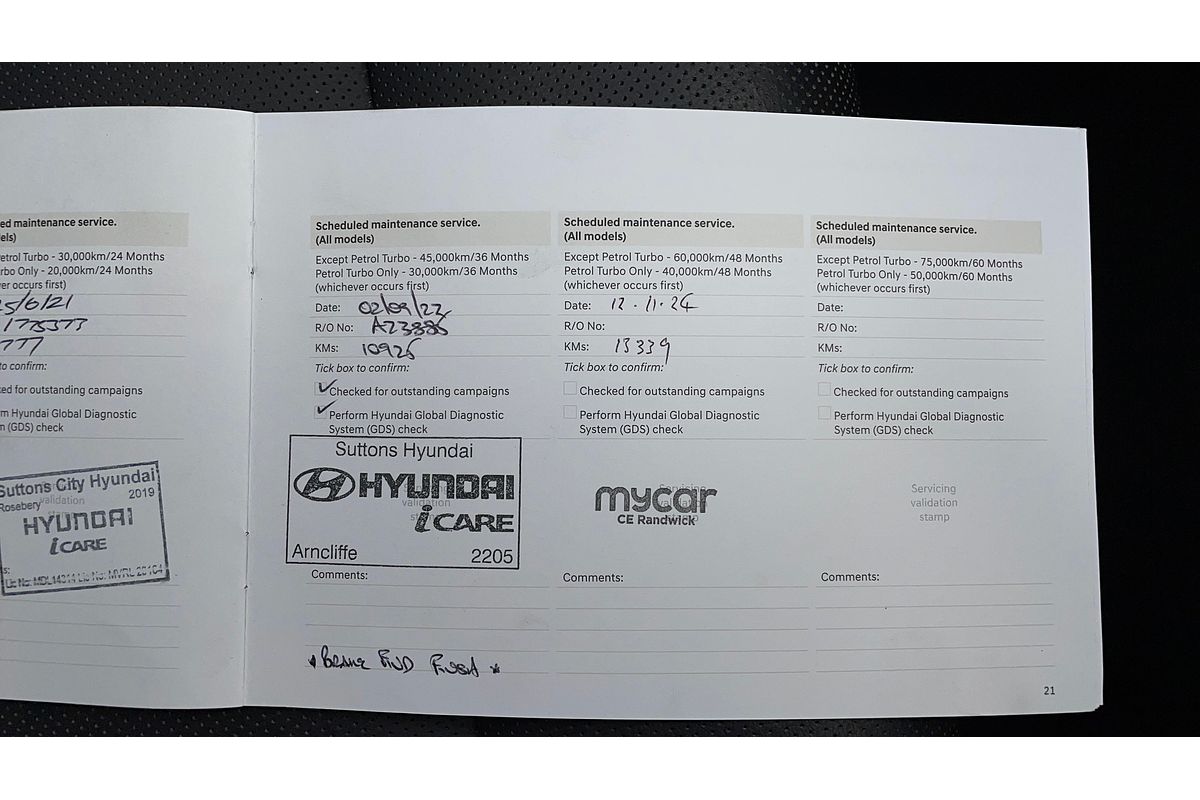 ed maintenance service.
els)
etrol Turbo - 30,000km/24 Months
rbo Only - 20,000km/24 Months
er occurs first)
25/6/21
1775373
777
to confirm:
ed for outstanding campaigns
m Hyundai Global Diagnostic
m (GDS) check
Suttons City Hyundai
Rosebery
2019
validation
HYUNDAI
iCARE
s:
Scheduled maintenance service.
(All models)
Except Petrol Turbo - 45,000km/36 Months
Petrol Turbo Only - 30,000km/36 Months
(whichever occurs first)
Date: 02/09/22
R/O No:
KMs: 10925
Tick box to confirm:
Checked for outstanding campaigns
Perform Hyundai Global Diagnostic
System (GDS) check
Suttons Hyundai
HYUNDAI
validation
iCARE
Arncliffe
2205
Comments:
Scheduled maintenance service.
(All models)
Except Petrol Turbo - 60,000km/48 Months
Petrol Turbo Only - 40,000km/48 Months
(whichever occurs first)
Date: 12.11.24
R/O No:
KMs: 13339
Tick box to confirm:
Checked for outstanding campaigns
Perform Hyundai Global Diagnostic
System (GDS) check
Servicing
mycar
CE Randwick
Comments:
Scheduled maintenance service.
(All models)
Except Petrol Turbo - 75,000km/60 Months
Petrol Turbo Only - 50,000km/60 Months
(whichever occurs first)
Date:
R/O No:
KMs:
Tick box to confirm:
Checked for outstanding campaigns
Perform Hyundai Global Diagnostic
System (GDS) check
Servicing
validation
stamp
Comments:
21